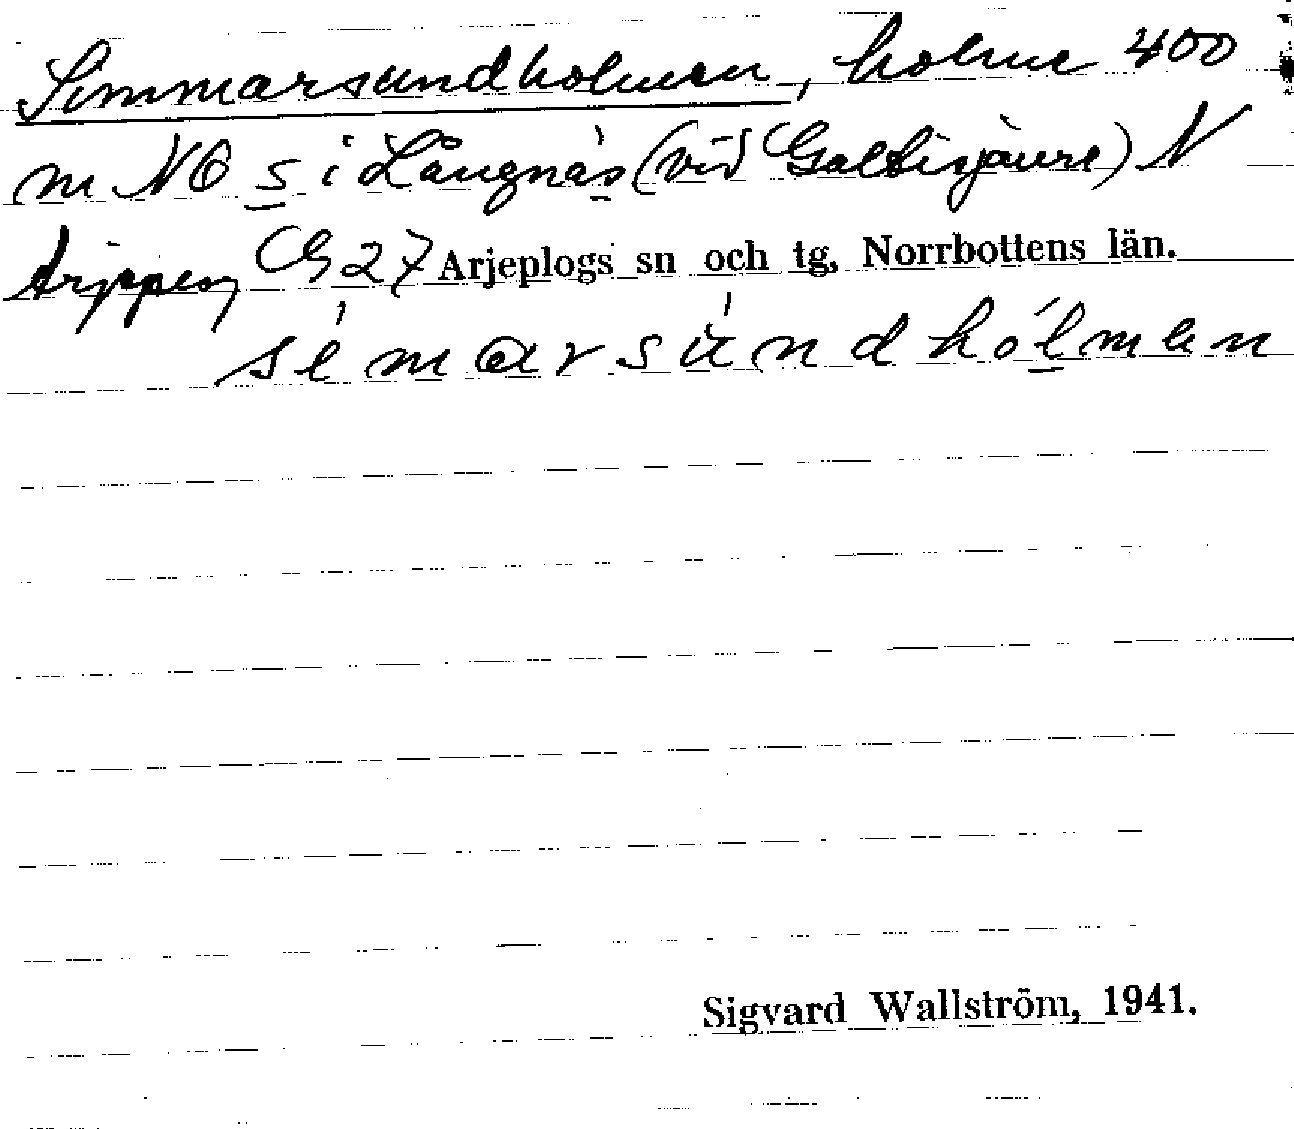 Simmarsundholmen, holme 400
m NO s i Långnäs (vid Galtisjaure) N
Arjeplog G 27 Arjeplogs sn och tg, Norrbottens län.
simarsúndhólmen
Sigvard Wallström, 1941.